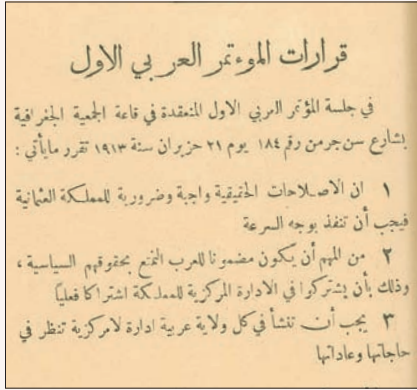 قرارات الموءتمر العربي الاول
في جلسة المؤتمر العربي الاول المنعقدة في قاعة الجمعية الجغرافية
بشارع سن جرمن رقم ١٨٤ يوم ٢١ حزيران سنة ١٩١٣ تقرر مايأتي :
١ ان الاصلاحات الحقيقية واجبة وضرورية للمملكة العثمانية
فيجب أن تنفذ بوجه السرعة
٢ من المهم أن يكون مضمونا للعرب التمتع بحقوقهم السياسية ،
وذلك بأن يشتركوا في الادارة المركزية للمملكة اشتراكا فعلياً
٣ يجب أن تنشأ في كل ولاية عربية ادارة لامركزية تنظر في
حاجاتها وعاداتها